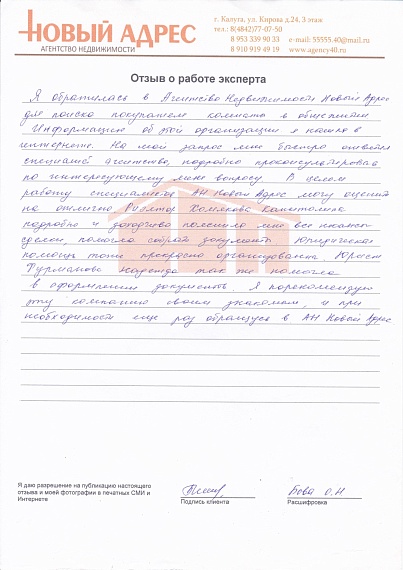 НОВЫЙ АДРЕС
АГЕНТСТВО НЕДВИЖИМОСТИ
г. Калуга, ул. Кирова д.24, 3 этаж
тел.: 8(4842)77-07-50
8 953 339 90 33 e-mail: 55555.40@mail.ru
8 910 919 49 19 www.agency40.ru
Отзыв о работе эксперта
Я обратилась в Агентство Недвижимости Новый Адрес
для поиска покупателя комнаты в общежитии
Информацию об этой организации я нашла в
интернете. На мой запрос мне быстро ответил
специалист агентства, подробно проконсультировав
по интересующему меня вопросу. В целом
работу специалистов АН Новый Адрес могу оценить
на отлично. Риэлтор Хомякова Капитолина
подробно и доходчиво пояснила мне все нюансы
сделки, помогла собрать документы. Юридическая
помощь тоже прекрасно организована. Юрист
Фурманова Надежда так же помогла
в оформлении документов. Я порекомендую
эту компанию своим знакомым, и при
необходимости еще раз обращусь в АН Новый Адрес
Я даю разрешение на публикацию настоящего
отзыва и моей фотографии в печатных СМИ и
Интернете
Подпись клиента
Бова О.Н
Расшифровка